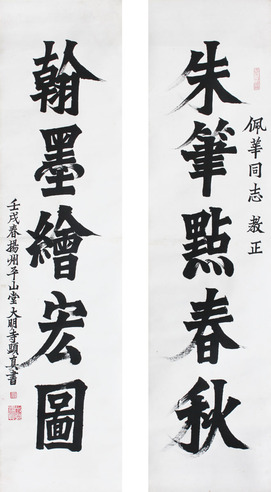 佩華同志教正
朱筆點春秋
翰墨繪宏圖
壬戌春揚州平山堂大明寺顕真書